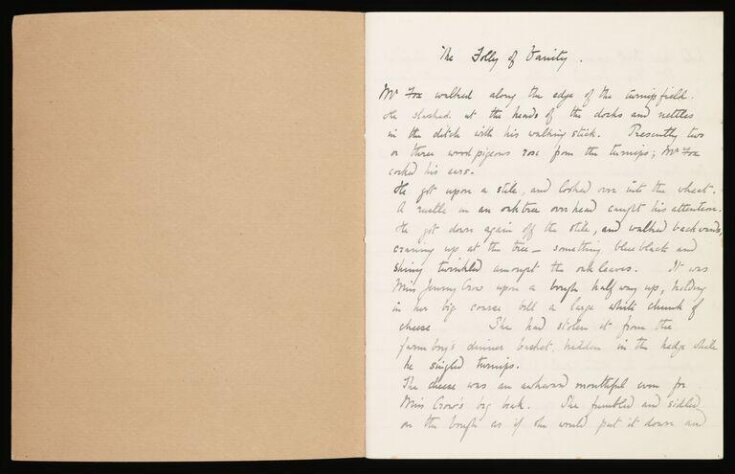 The Folly of Vanity.
Mr Fox walked along the edge of the turnip field.
He slashed at the heads of the docks and nettles
in the ditch with his walking stick. Presently two
or three wood pigeons rose from the turnips; Mr Fox
cocked his ears.
He got upon a stile, and looked over into the wheat.
A rustle in an oak tree overhead caught his attention.
He got down again off the stile, and walked backwards,
craning up at the tree — something blue black and
shiny twinkled amongst the oak leaves. It was
Miss Jenny Crow upon a bough half way up, holding
in her big coarse bill a large white chunk of
cheese. She had stolen it from the
farm boy's dinner basket, hidden in the hedge while
he singled turnips.
The cheese was an awkward mouthful even for
Miss Crow's big beak. She fumbled and sidled
on the bough as if she would put it down and